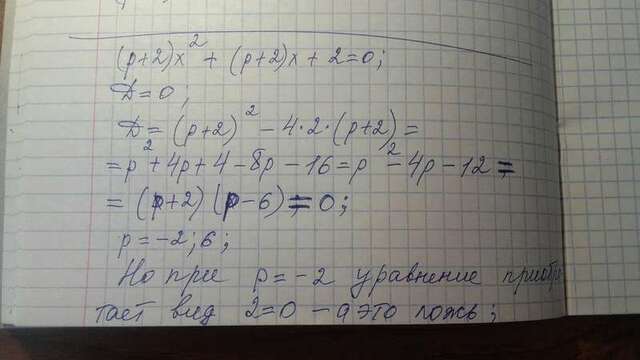 (p+2)x² + (p+2)x + 2=0;
D=0;
D= (p+2)² - 4·2·(p+2) =
=p²+4p+4-8p-16=p²-4p-12=
= (p+2)(p-6) = 0;
p=-2; 6;
Но при p=-2 уравнение приобре
тает вид 2=0 - а это ложь;